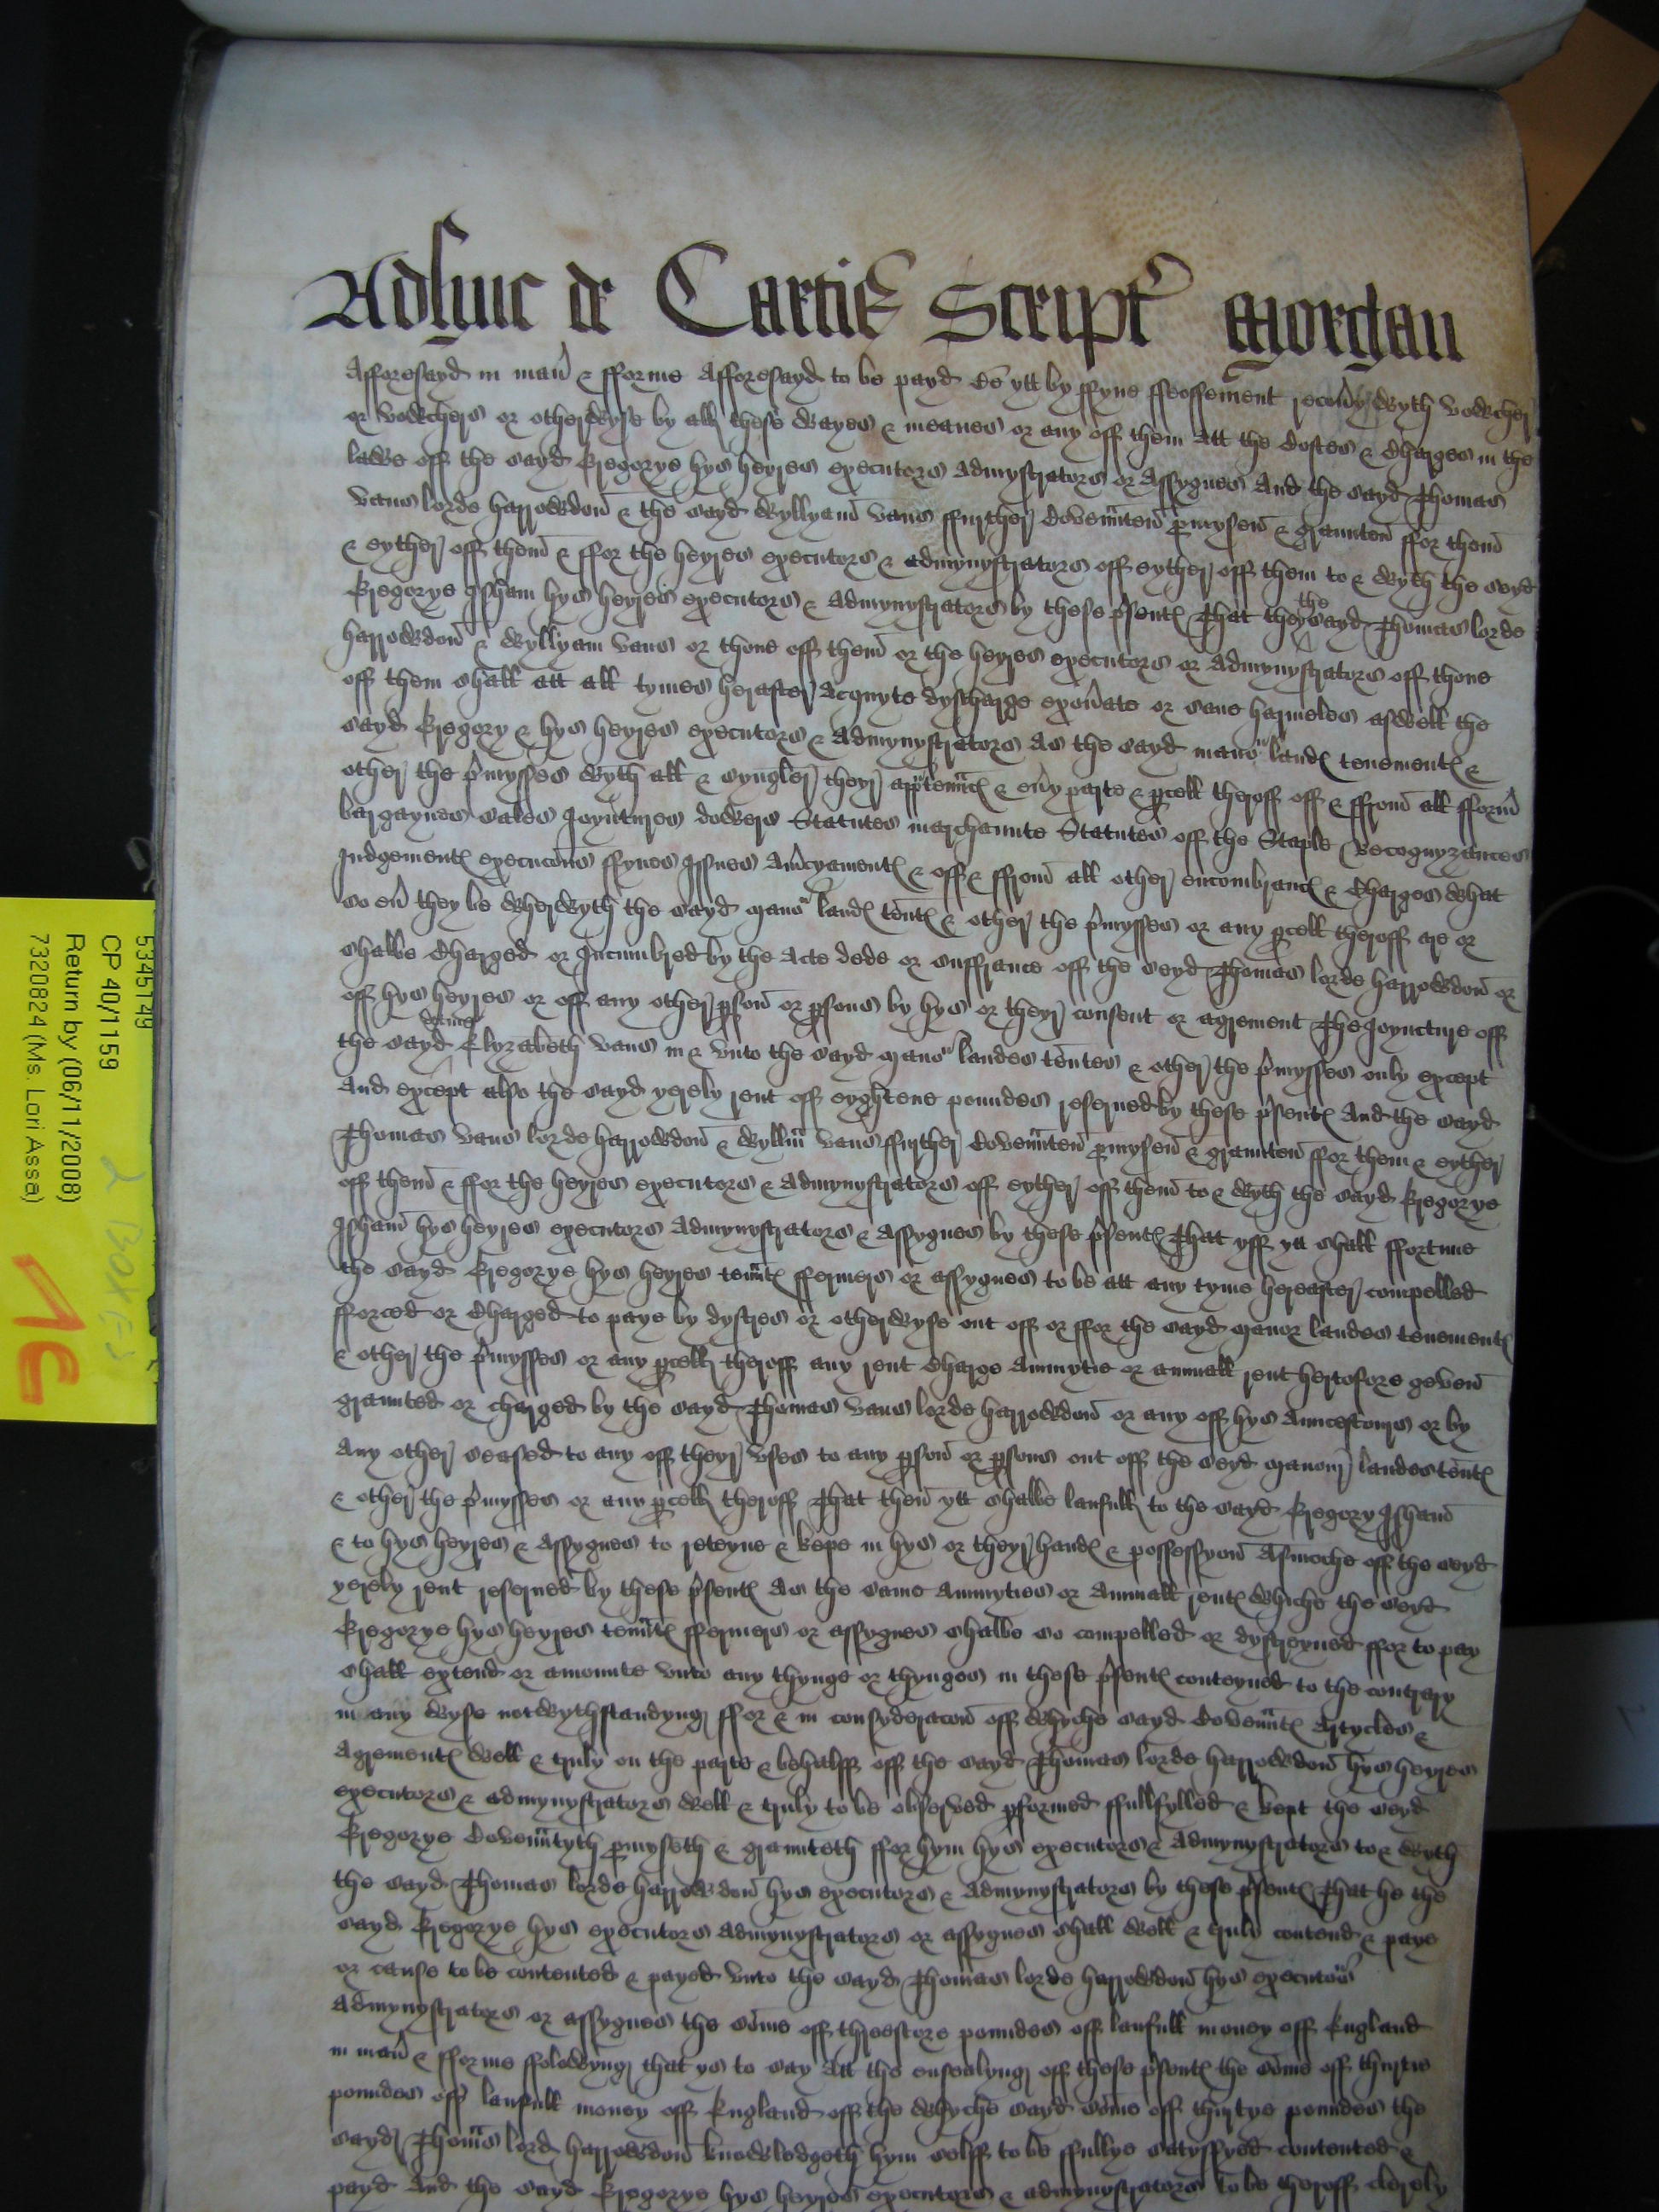 Adhuc de Cartis Script Morgan
Afforesayd in man & fforme Afforesayd to be payd be ytt by ffyne ffeoffement recovy wyth vowcher
or vowchers or otherwyse by all these wayes & meanes or any off them Att the Costes & Charges in the
lawe off the sayd Gregorye hys heyres executors Admystrators or Assygnes And the sayd Thomas
vaus lorde harrowdon & the sayd Wyllyam vaus ffurther Covenaten pmysen & graunten ffor them
& eyther off them & ffor the heyres executors & admynystrators off eyther off them to & wyth the seyd
Gregorye Isham hys heyres executors & Admynystrators by these psent That they the sayd Thomas lorde
harrowdon & Wyllyam vaus or thone off them or the heyres executors or Admynystrators off thone
off them shall att all tymes herafter Acquyte dyscharge exonate or save harmeles aswell the
sayd Gregory & hys heyres executors & Admynystrators As the sayd mano land tenement &
other the pmysses wyth all & syngler theyr apptennc & evy parte & pcell theroff off & ffrom all fform
bargaynes Sales Joyntures dowers Statutes marchaunte Statutes off the Staple Recognyzances
Judgement execucons ffynes Issues Amcyament & off & ffrom all other encombranc & Charges what
so ev they be wherwyth the sayd mano land tent & other the pmysses or any pcell theroff are or
shalbe Charged or Incumbred by the Acte dede or suffrance off the seyd Thomas lorde harrowdon or
off hys heyres or off any other pson or psons by hys or theyr consent or agrement The Joyncture off
the sayd dame Elyzabeth vaus in & vnto the sayd mano landes tentes & other the pmysses only except
And except also the sayd yerely rent off eyghtene poundes reserued by these psent And the sayd
Thomas vaus lorde harrowdon & Wyllm vaus ffurther Covenaten pmysen & graunten ffor them & eyther
off them & ffor the heyres executors & Admynystrators off eyther off them to & wyth the sayd Gregorye
Isham hys heyres executors Admynystrators & Assygnes by these psent That yff ytt shall ffortune
the sayd Gregorye hys heyres tennt ffermers or assygnes to be att any tyme hereafter compelled
fforced or Charged to paye by dystres or otherwyse out off or ffor the sayd manor landes tenement
& other the pmysses or any pcell theroff any rent Charge Annuytie or annuall rent hertofore geven
graunted or charged by the sayd Thomas vaus lorde harrowdon or any off hys Auncestours or by
Any other seased to any off theyr vses to any pson or psons out off the seyd manour landes tent
& other the pmysses or any pcell theroff That then ytt shalbe laufull to the sayd Gregory Isham
& to hys heyres & Assygnes to reteyne & kepe in hys or theyr hand & possessyon Asmoche off the seyd
yerely rent reserued by these psent As the same Annuyties or Annuall rent whiche the seyd
Gregorye hys heyres tennt ffermers or assygnes shalbe so compelled or dystreyned ffor to pay
shall extend or amounte vnto any thynge or thynges in these psent conteyned to the contrary
in any wyse notwythstandyng ffor & in consyderacon off whyche sayd Covennt Artycles &
Agrement well & truly on the parte & behalff off the sayd Thomas lorde harrowdon hys heyres
executors & admynystrators well & truly to be observed pformed ffullfylled & kept the seyd
Gregorye Covenntyth pmyseth & graunteth ffor hym hys executors & Admynystrators to & wyth
the sayd Thomas lorde harrowdon hys executors & Admynystrators by these psent That he the
sayd Gregorye hys executors Admynystrators or assygnes shall well & truly contend & paye
or cause to be contented & payed vnto the sayd Thomas lorde harrowdon hys executours
Admynystrators or assygnes the Some off threescore poundes off laufull money off England
in man & fforme ffolowyng that ys to say Att the ensealyng off these psent the Some off thirtie
poundes off laufull money off England off the whyche sayd Some off thirtye poundes the
sayd Thoms lord harrowdon knowledgeth hym selff to be ffullye satysfyed contented &
payd And the sayd Gregorye hys heyres executors & admynystrators to be theroff clerely
5345149
CP 40/1159
Return by (06/11/2008)
7320824 (Ms. Lori Assa)